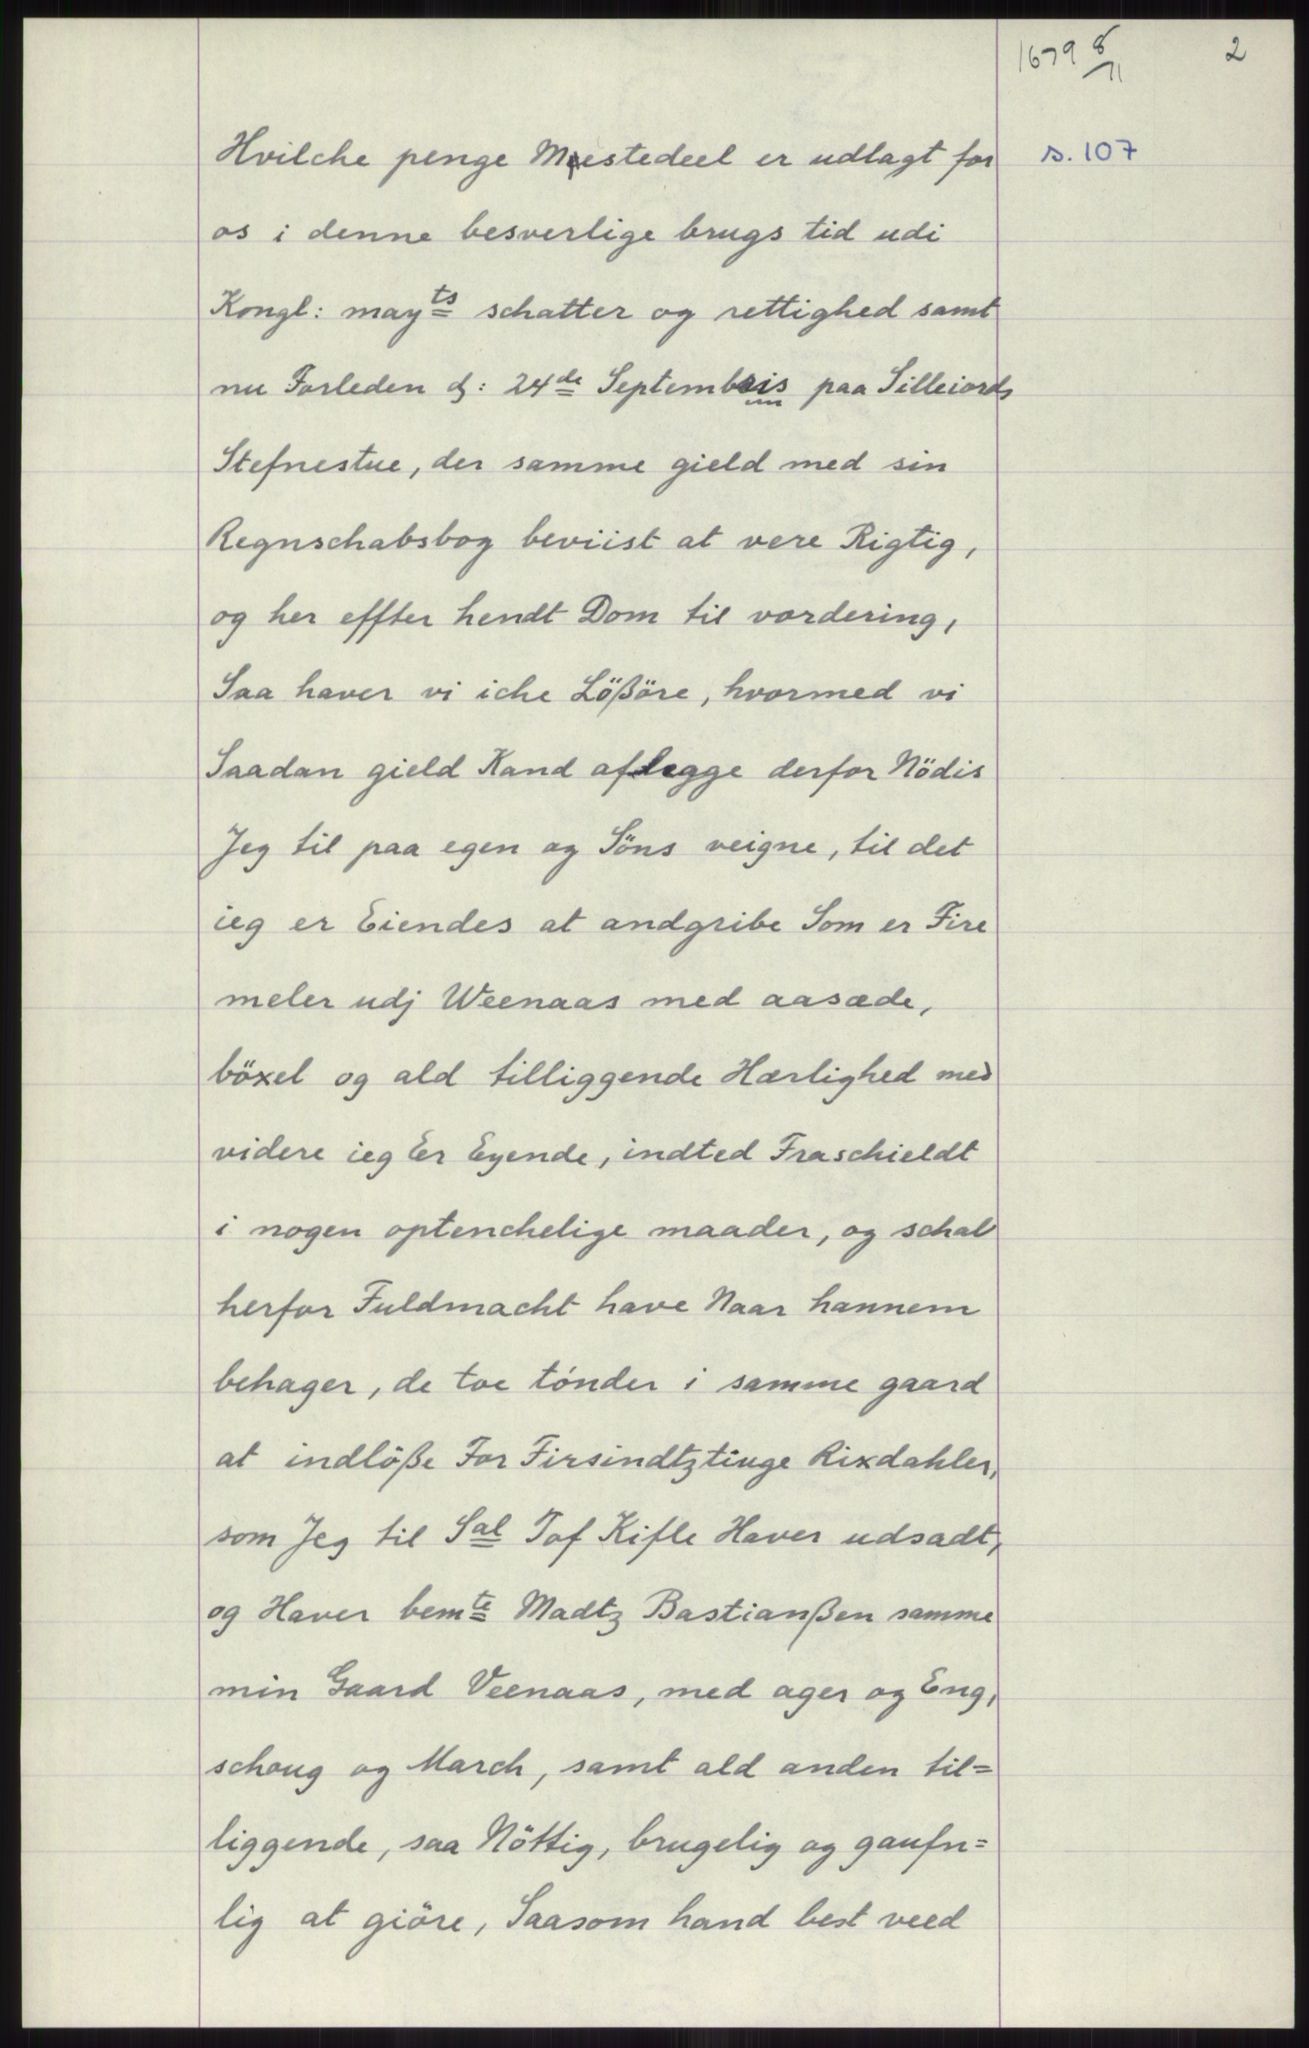 1679 8/11
2
Hvilche penge Meestedeel er udlagt for
s. 107
os i denne besverlige brugs tid udi
Kongl: mayts schatter og rettighed samt
nu Forleden d: 24de Septembris paa Silleiords
Stefnestue, der samme gield med sin
Regnschabsbog beviist at vere Rigtig,
og her effter hendt Dom til vordering,
Saa haver vi iche Lößöre, hvormed vi
Saadan gield Kand aflegge derfor Nödis
Jeg til paa egen og Söns veigne, til det
ieg er Eiendes at andgribe Som er Fire
meler udj Weenaas med aasæde,
böxel og ald tilliggende Hærlighed med
videre ieg Er Eyende, indted Fraschieldt
i nogen optenchelige maader, og schal
herfor Fuldmacht have Naar hannem
behager, de toe tónder i samme gaard
at indlöße For Firsindtztiuge Rixdahler,
som Jeg til Sal Tof Kifle Haver udsadt,
og Haver bemte Madtz Bastianßen samme
min Gaard Veenaas, med ager og Eng,
schoug og March, samt ald anden til=
liggende, saa Nöttig, brugelig og gaufn=
lig at giöre, Saasom hand best veed